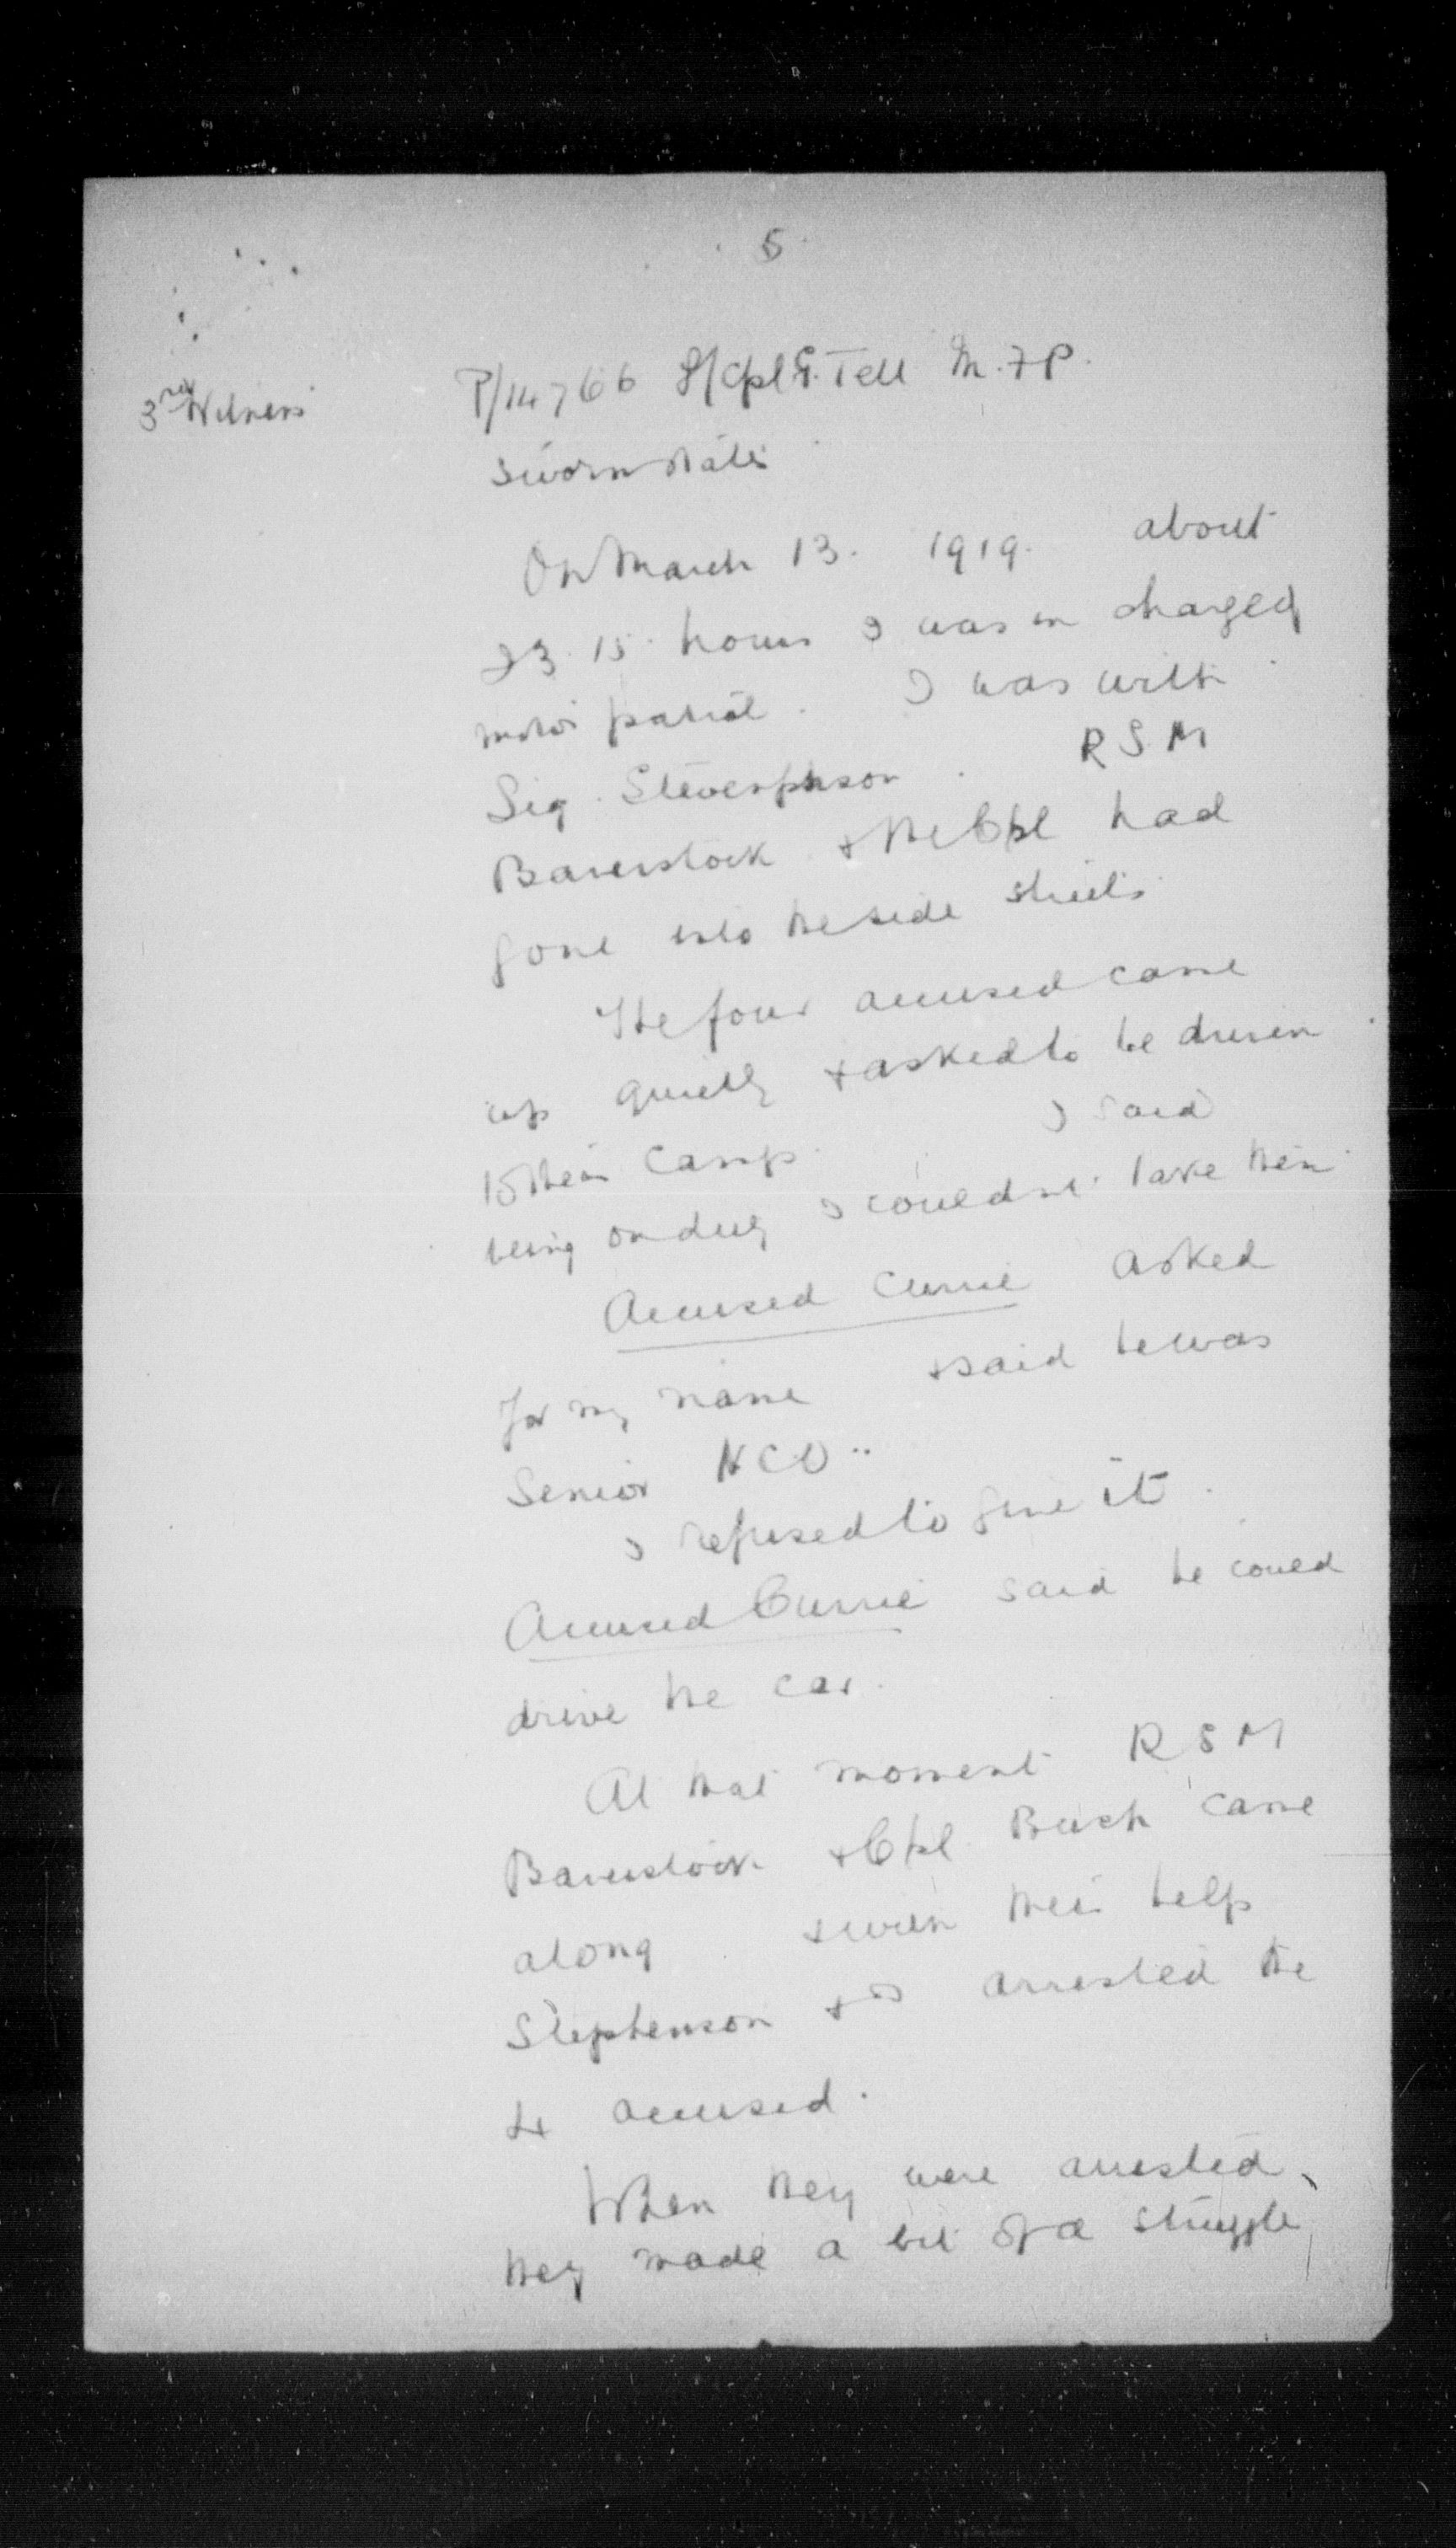 5
3rd Witness
P/14766 L/Cpl G. Tell M.F.P.
sworn states
On March 13. 1919. about
23.15 hours I was in charge of
motor patrol. I was with
Sig. Stevenphson. RSM
Baverstock & the Cpl had
gone into the side streets
The four accused came
up quietly & asked to be driven
to their Camp. I said
being on duty I could not take them
Accused Currie asked
for my name & said he was
Senior NCO..
I refused to give it.
Accused Currie said he could
drive the car.
At that moment RSM
Baverstock & Cpl Bush came
along & with their help
Stephenson & I arrested the
4 accused.
When they were arrested,
they made a bit of a struggle